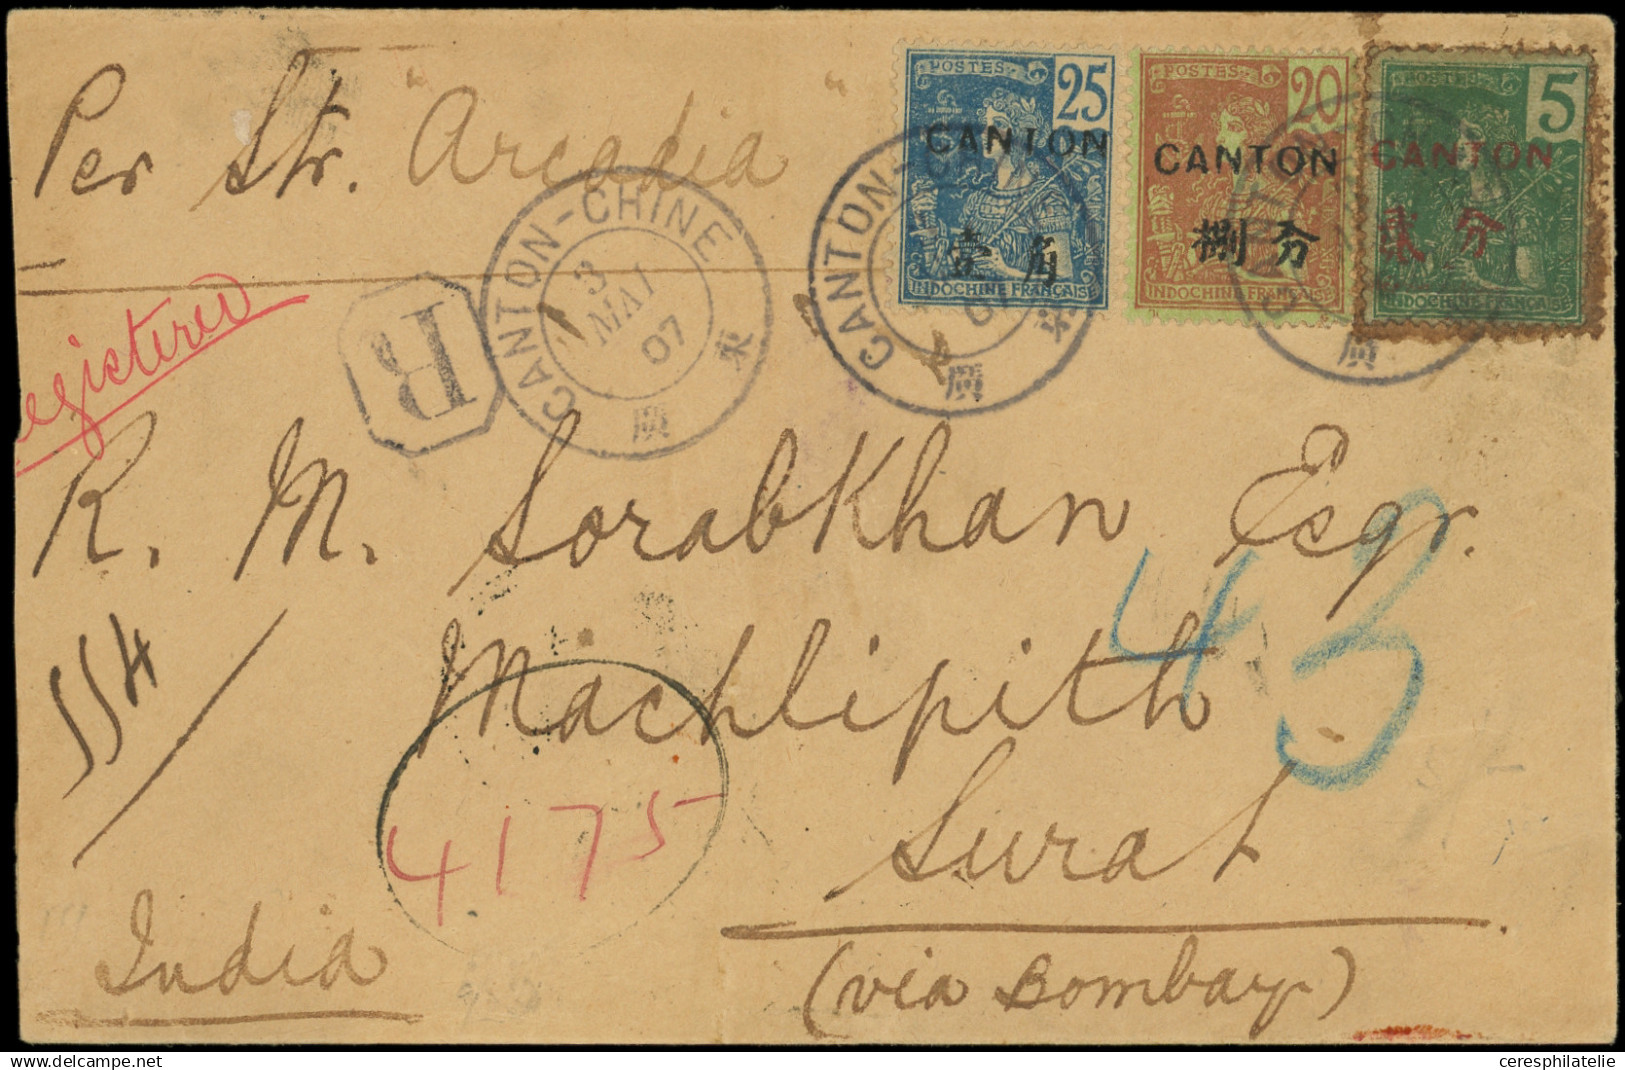 Per Str. "Arcadia"
POSTES 25
CANTON
壹角
INDOCHINE FRANÇAISE
POSTES 20
CANTON
捌分
INDOCHINE FRANÇAISE
POSTES 5
CANTON
貳分
INDOCHINE FRANÇAISE
CANTON-CHINE
3
MAI
07
廣東
CANTON-CHINE
07
廣東
廣
R
egistered
R. M. Sorabkhan Esqr.
554
Machlipith
43
4175
Surat
India
(via Bombay)
delcampe.net
ceresphilatelie